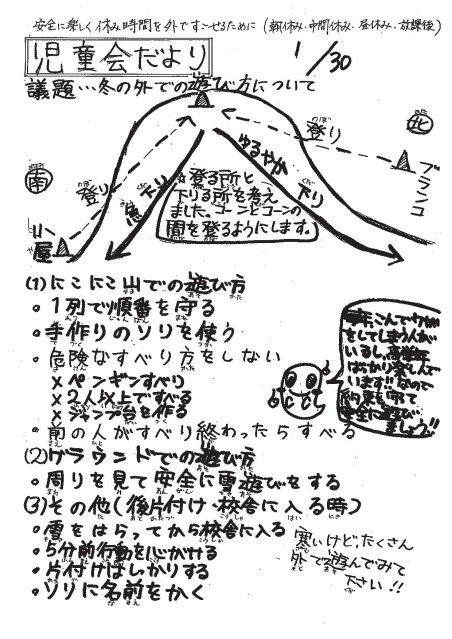 安全に楽しく休み時間を外ですごせるために(朝休み・中間休み・昼休み・放課後)
児童会だより
1/30
議題…冬の外での遊び方について
北
南
登り
登り
ゆるやか下り
急下り
ブランコ
小屋
☆登る所と
下りる所を考え
ました。コーンとコーンの
間を登るようにします。
(1)にこにこ山での遊び方
・1列で順番を守る
・手作りのソリを使う
・危険なすべり方をしない
×ペンギンすべり
×2人以上ですべる
×ジャンプ台を作る
・前の人がすべり終わったらすべる
毎年こんでケガ
をしてしまう人が
いるし、高学年
ばかり楽しんで
います!!なので
約束を守って
安全に遊び
ましょう!!
(2)グラウンドでの遊び方
・周りを見て安全に雪遊びをする
(3)その他(後片付け・校舎に入る時)
・雪をはらってから校舎に入る
・5分前行動を心がける
・片付けはしかりする
・ソリに名前をかく
寒いけど、たくさん
外で遊んでみて
下さい!!